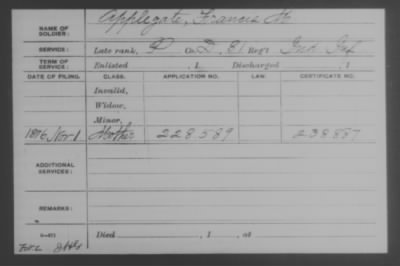 Applegate, Francis M
NAME OF SOLDIER:
SERVICE: Late rank, P Co. D, 81 Reg't Ind Inf
TERM OF SERVICE: Enlisted , 1 Discharged , 1
DATE OF FILING. CLASS. APPLICATION NO. LAW. CERTIFICATE NO.
Invalid,
Widow,
Minor,
1876 Nov 1 Mother 228589 238887
ADDITIONAL SERVICES:
REMARKS:
Died , 1 , at